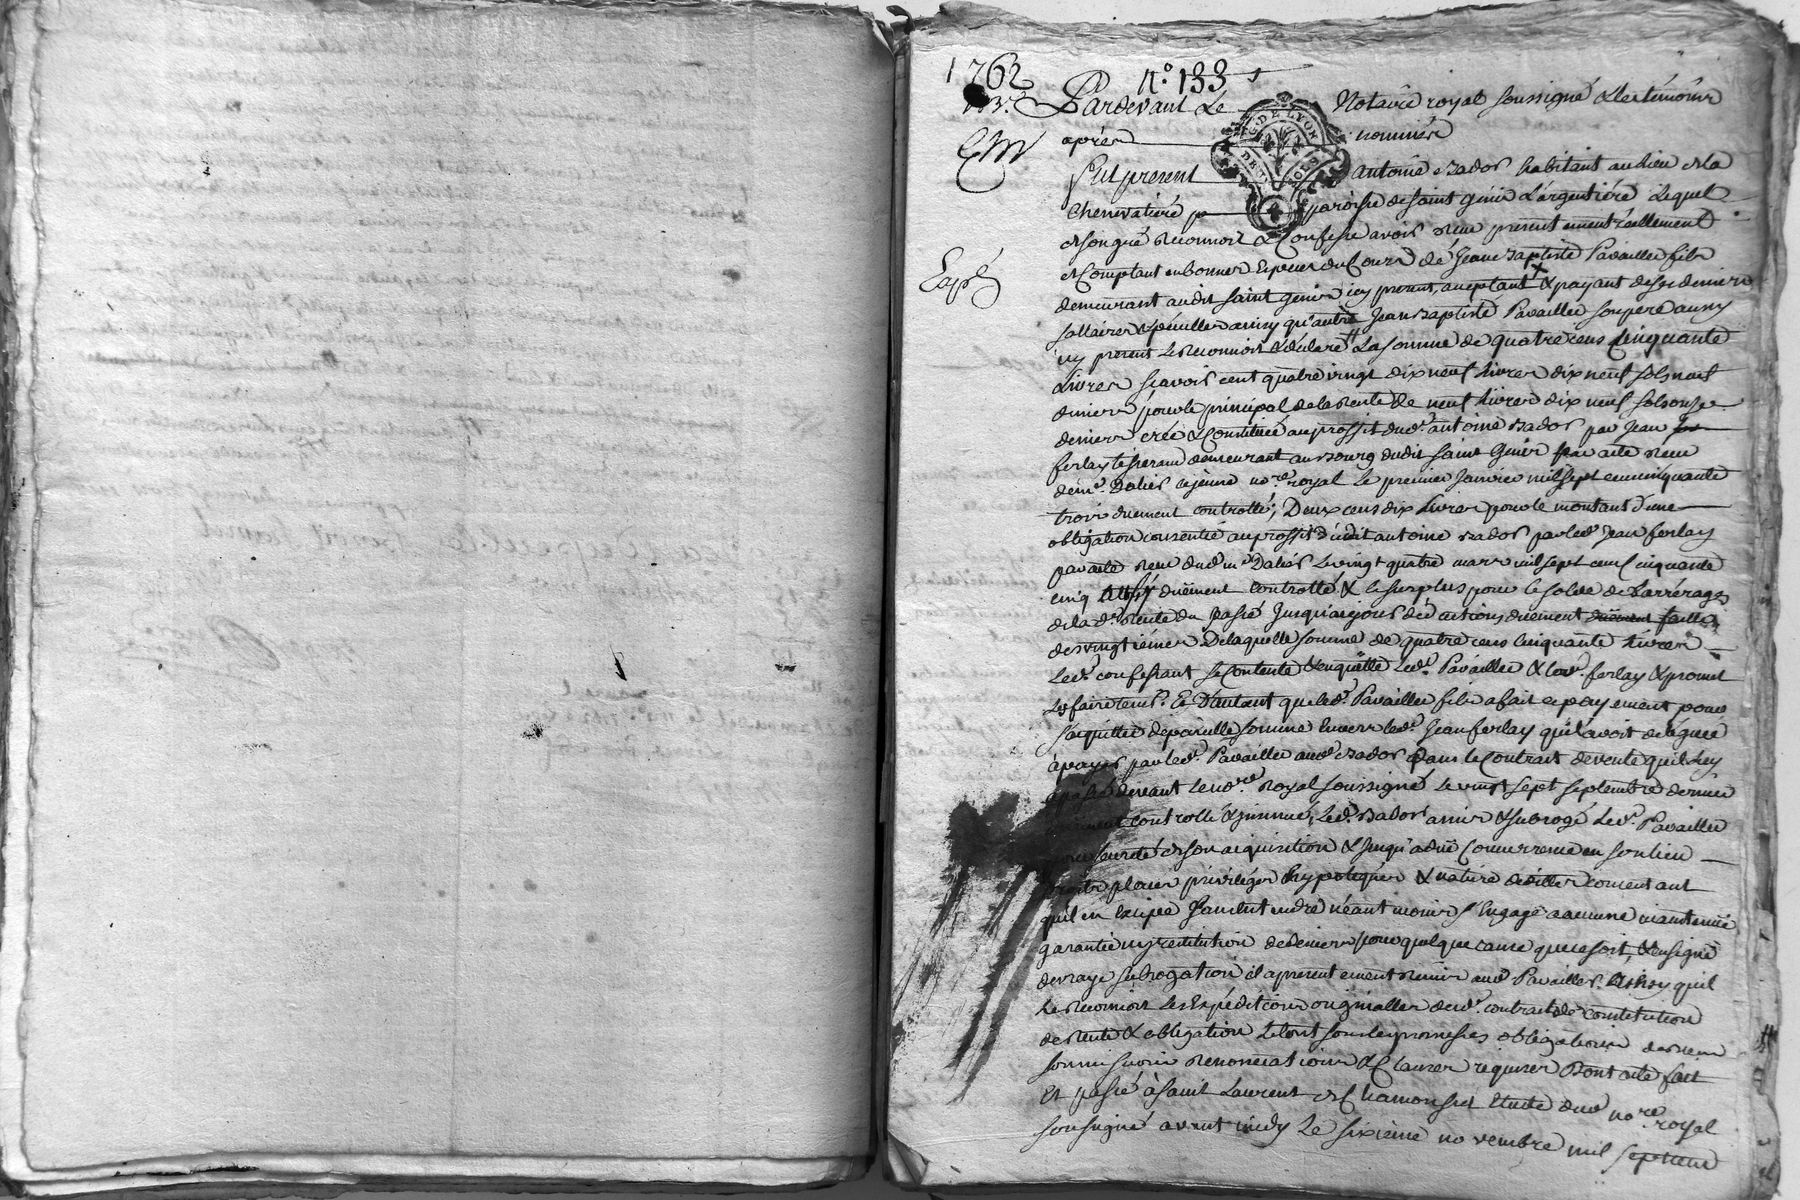 1762
N.º 133
Pardevant Le Notaire royal soussigné & les témoins
G. DE LYON
DEUX SOLS
après nommés
Fut present Antoine Bador habitant au lieu de la
Chenevatiere paroisse de saint Genis L'argentiere Lequel
de son gré reconnoit & Confesse avoir reçu presentement réellement
et Comptant en bonnes Especes du Cours de Jean Baptiste Pavailler fils
demeurant audit saint Genis icy present, acceptant & payant de ses deniers
Expé
Jean Baptiste Pavailler son pere aussy
icy present Le reconnoit & declare La somme de quatre cens Cinquante
Livres scavoir cent quatre vingt dix neuf Livres dix neuf sols neuf
deniers pour le principal de la rente de neuf Livres dix neuf sols onze
deniers crée & Constituée au proffit dud.t antoine Bador par Jean
ferlay tisserand demeurant au Bourg dudit saint Genis par acte reçu
de m.e Daliés Lejeune no.re royal Le premier Janvier mil sept cens cinquante
trois duement controllé; Deux cens dix Livres pour le montant d'une
obligation consentie au proffit dudit antoine Bador par led.t Jean ferlay
par acte reçu dud.t m.e Daliés Le vingt quatre mars mil sept cens cinquante
cinq aussy duëment Controllé & le surplus pour le solde des arrérages
de la d.e rente du passé Jusqu'aujourd'huy
des vingtiémes De laquelle somme de quatre cens Cinquante Livres
Led.t confessant se Contente & en quitte led.t Pavailler & led.t ferlay & promet
Les faire tenir. Et D'autant que led.t Pavailler fils a fait ce payement pour
s'aquitter de pareille somme Envers led.t Jean ferlay qu'il avoit deleguée
à payer par led.t Pavailler aud.t Bador Dans le Contrat de vente qu'il luy
a passé devant le no.re Royal soussigné Le vingt sept septembre dernier
duement controllé & insinué, Led.t Bador a mis & subrogé Led.t Pavailler
pour sureté de son acquisition & Jusqu'a due Concurrence en son lieu
droits places privileges hypoteques & nature d'icelles consentant
qu'il en Excipe sans Entendre néantmoins s'Engager a aucune maintenue
garantie ny restitution de deniers pour quelque cause que ce soit, & en signe
de vraye subrogation il a presentement remis aud.t Pavailler Ainsy qu'il
Le reconnoit Les Expéditions originalles desd.ts contrat de constitution
de rente & obligation Le tout sous les promesses obligations de biens
soumissions renonciations & Clauses requises Dont acte fait
Et passé à saint Laurent de Chamousset Etude dud.t no.re royal
soussigné avant midy Le sixieme novembre mil sept cens